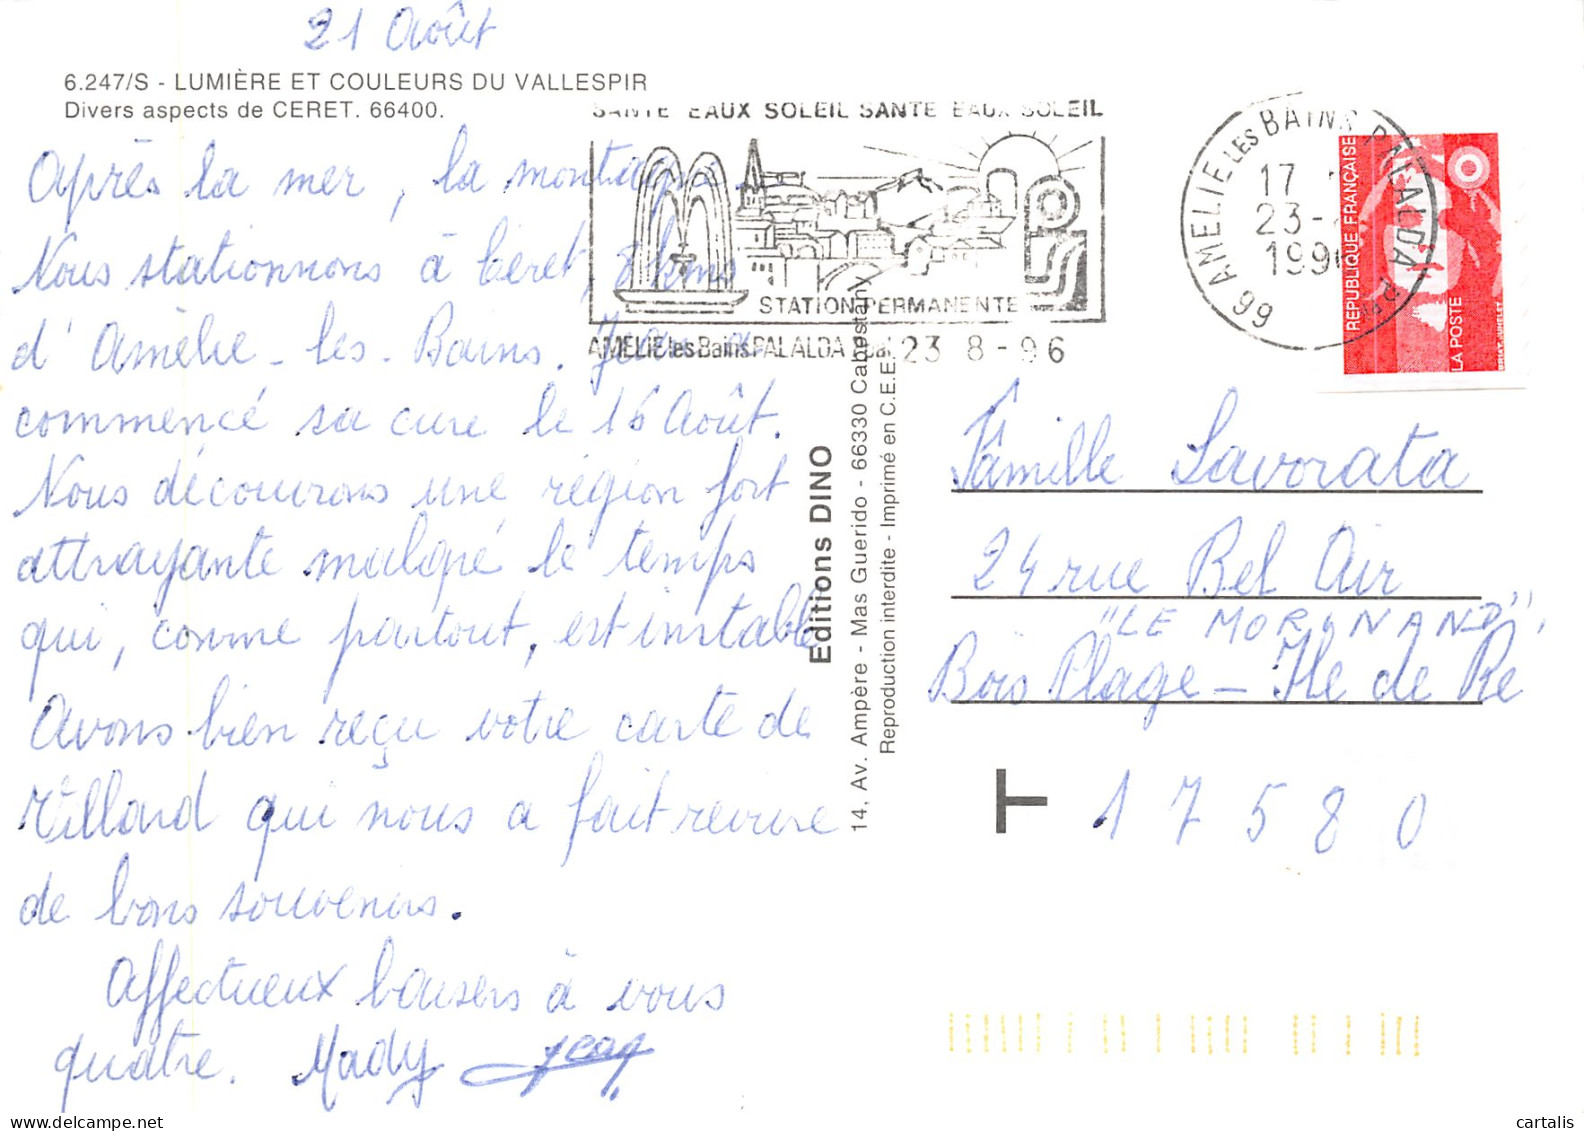 21 Août
6.247/S - LUMIÈRE ET COULEURS DU VALLESPIR
Divers aspects de CERET. 66400.
Après la mer, la montagne.
Nous stationnons à Céret, 8 kms
d'Amélie-les-Bains. Jean a
commencé sa cure le 16 Août.
Nous découvrons une région fort
attrayante malgré le temps
qui, comme partout, est instable
Avons bien reçu votre carte de
Villard qui nous a fait revivre
de bons souvenirs.
Affectueux baisers à vous
quatre. Mady Jean
SANTE EAUX SOLEIL SANTE EAUX SOLEIL
STATION PERMANENTE
AMELIE les Bains PALALDA 23 8 - 96
66 AMELIE LES BAINS PALALDA
17
23-
199
REPUBLIQUE FRANÇAISE
LA POSTE
Editions DINO
14, Av. Ampère - Mas Guerido - 66330 Cabestany
Reproduction interdite - Imprimé en C.E.E.
Famille Lavorata
24 rue Bel Air
"LE MORINAND",
Bois Plage - Ile de Ré
T 17580
cartalis